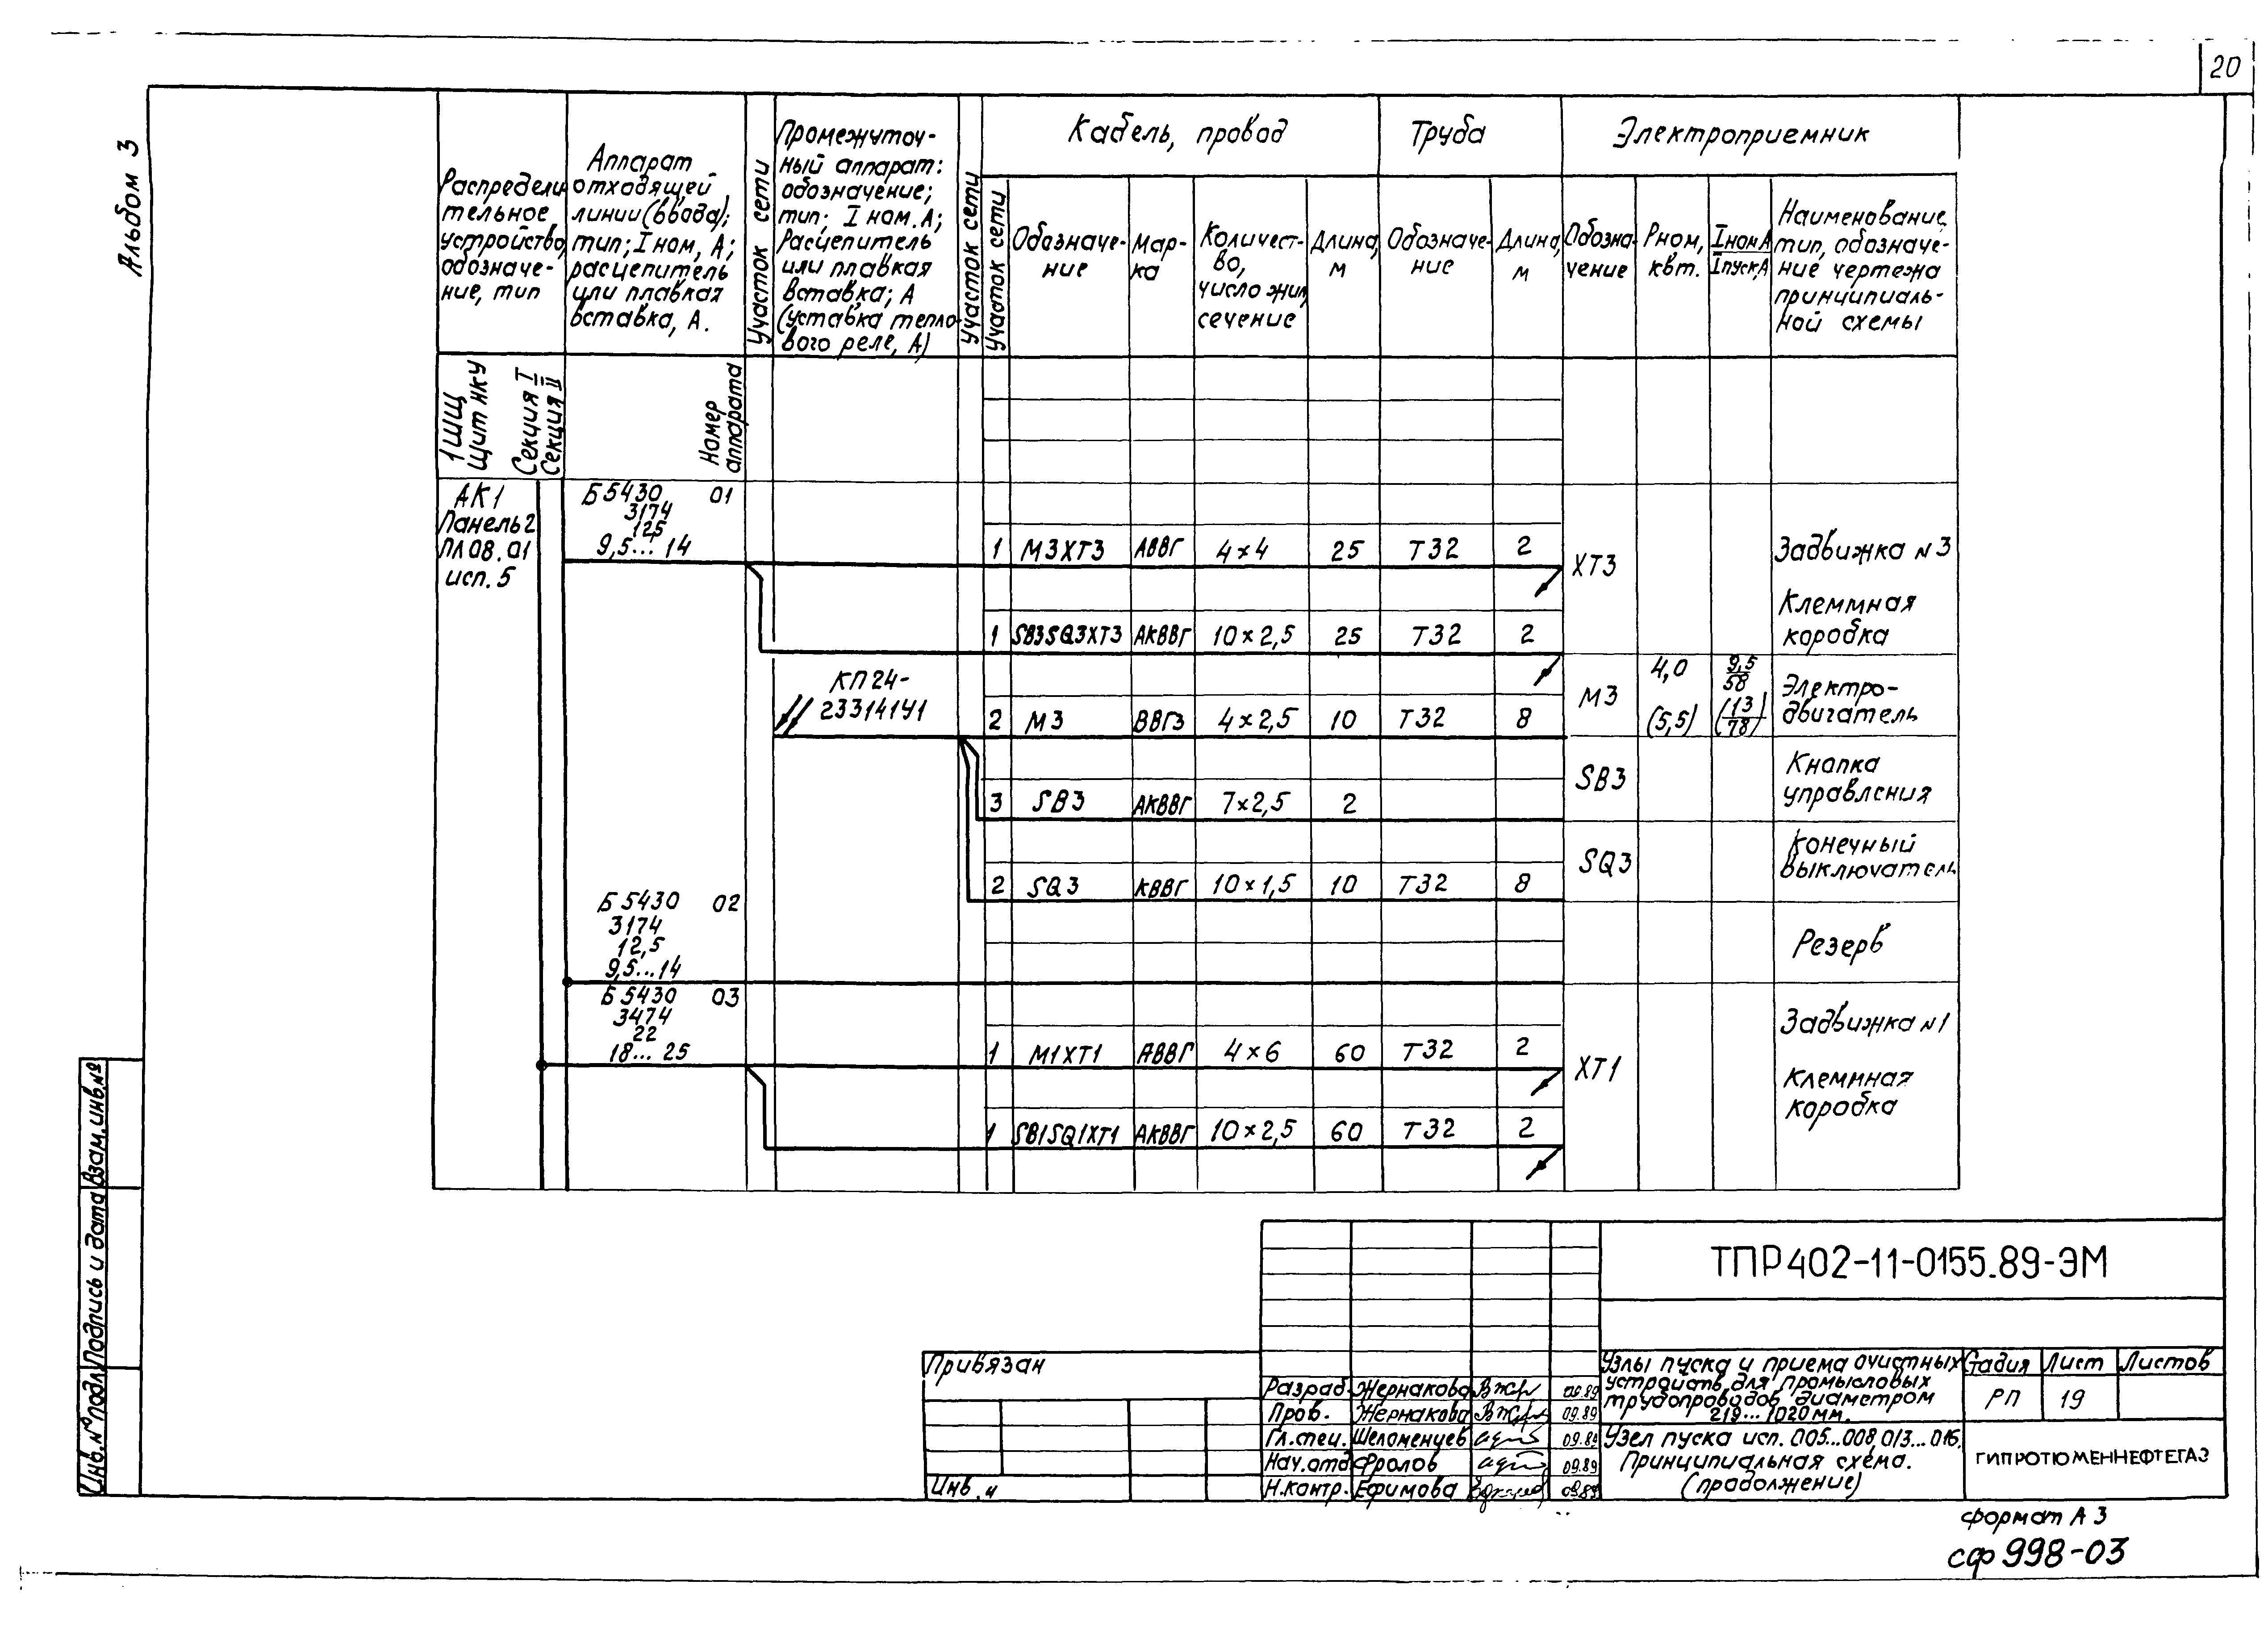 20
Альбом 3
Распредели-
тельное
устройство,
обозначе-
ние, тип
Аппарат
отходящей
линии (ввода);
тип; I ном, А;
расцепитель
или плавкая
вставка, А.
Участок сети
Промежуточ-
ный аппарат:
обозначение;
тип; I ном. А;
Расцепитель
или плавкая
вставка; А
(уставка тепло-
вого реле, А)
Участок сети
Участок сети
Кабель, провод
Обозначе-
ние
Мар-
ка
Количест-
во,
число жил,
сечение
Длина,
м
Труба
Обозначе-
ние
Длина,
м
Электроприемник
Обозна-
чение
Рном,
квт.
Iном А
Iпуск,А
Наименование,
тип, обозначе-
ние чертежа
принципиаль-
ной схемы
1ШЩ
Щит НКУ
Секция I
Секция II
Номер
аппарата
АК1
Панель 2
ПЛ08.01
исп. 5
Б5430 01
3174
125
9,5...14
1 М3ХТ3 АВВГ 4×4 25 Т32 2
ХТ3
Задвижка N3
Клеммная
коробка
1 SB3SQ3XT3 АКВВГ 10×2,5 25 Т32 2
КП24-
23314141
2 М3 ВВГз 4×2,5 10 Т32 8
М3
4,0
(5,5)
9,5
58
(13
78)
Электро-
двигатель
3 SB3 АКВВГ 7×2,5 2
SB3
Кнопка
управления
2 SQ3 КВВГ 10×1,5 10 Т32 8
SQ3
Конечный
выключатель
Б5430 02
3174
12,5
9,5...14
Резерв
Б5430 03
3474
22
18...25
1 М1ХТ1 АВВГ 4×6 60 Т32 2
ХТ1
Задвижка N1
Клеммная
коробка
1 SB1SQ1XT1 АКВВГ 10×2,5 60 Т32 2
Инв.N°подл. Подпись и дата Взам.инв.N°
Привязан
Инв.N
Разраб. Жернакова 09.89
Пров. Жернакова 09.89
Гл.спец. Шеломенцев 09.89
Нач.отд Фролов 09.89
Н.контр. Ефимова 09.89
ТПР402-11-0155.89-ЭМ
Узлы пуска и приема очистных
устройств для промысловых
трубопроводов диаметром
219...1020мм.
Стадия Лист Листов
РП 19
Узел пуска исп. 005...008, 013...016.
Принципиальная схема.
(продолжение)
ГИПРОТЮМЕННЕФТЕГАЗ
формат А3
сф 998-03